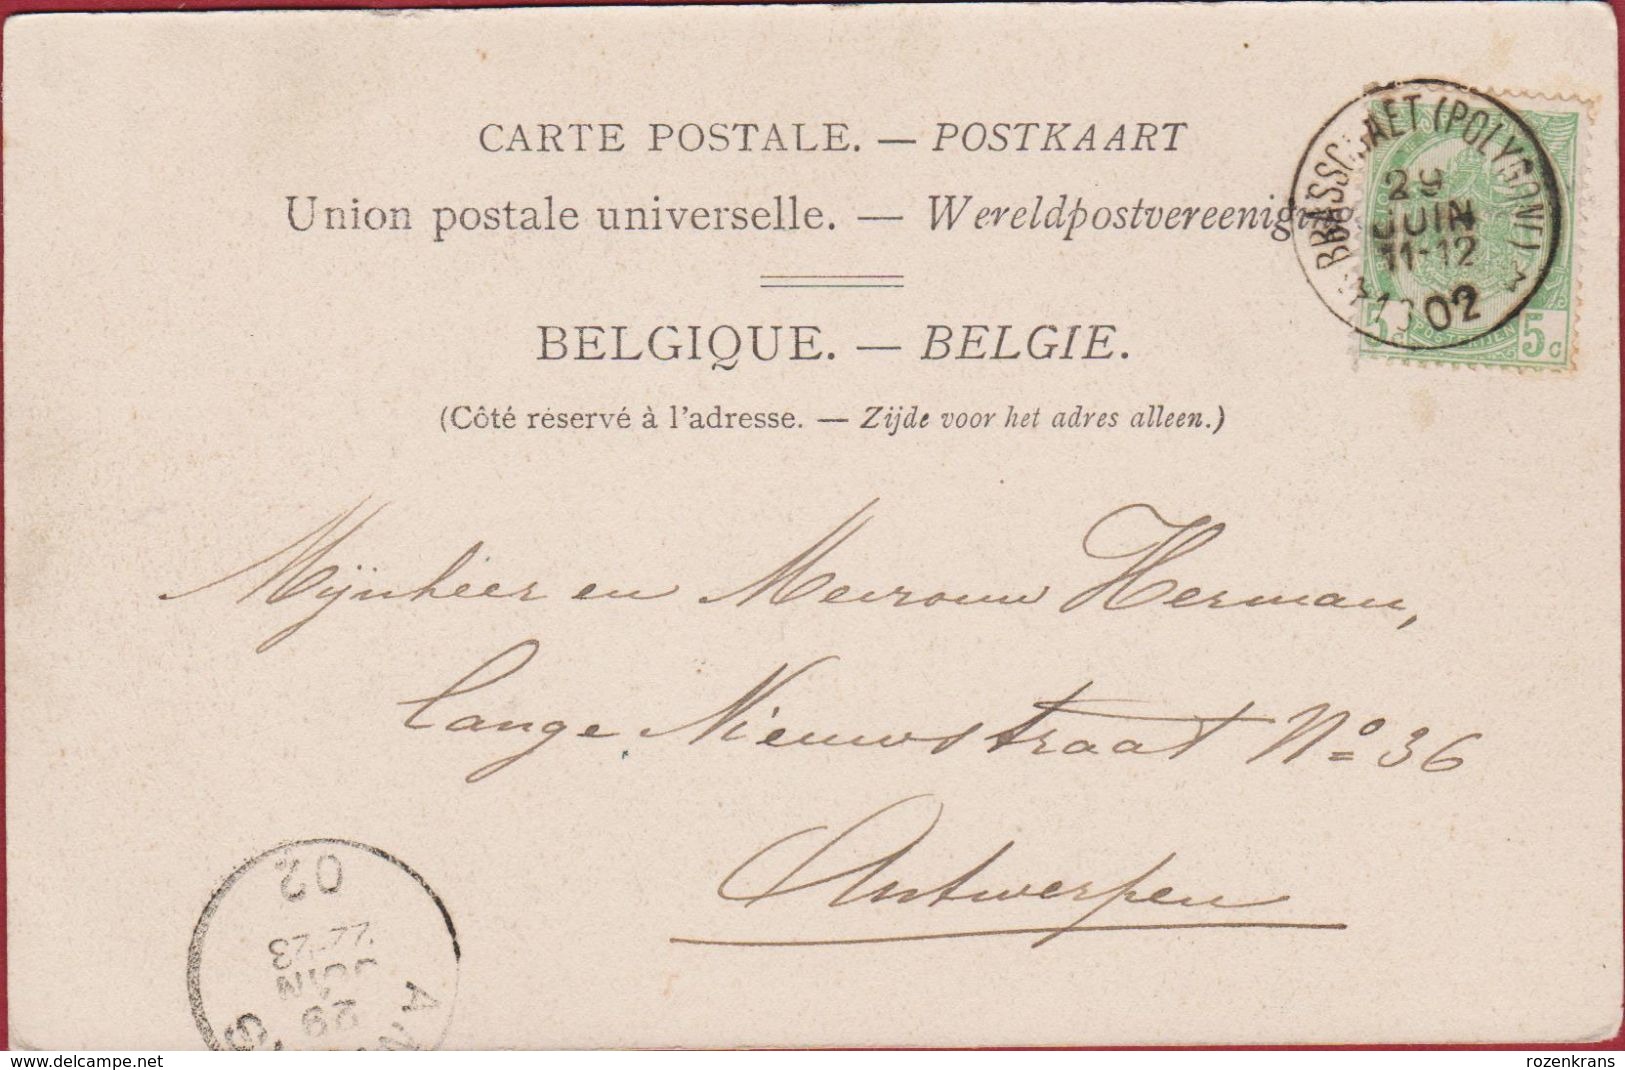 CARTE POSTALE. — POSTKAART
Union postale universelle. — Wereldpostvereeniging
BELGIQUE. — BELGIE.
(Côté réservé à l'adresse. — Zijde voor het adres alleen.)
BRASSCHAET (POLYGONE)
29
JUIN
11-12
1902
POSTERIJEN
5c
Mijnheer en Mevrouw Herman,
Lange Nieuwstraat Nº 36
Antwerpen
02
22-23
JUIN
29
www.delcampe.net
rozenkrans